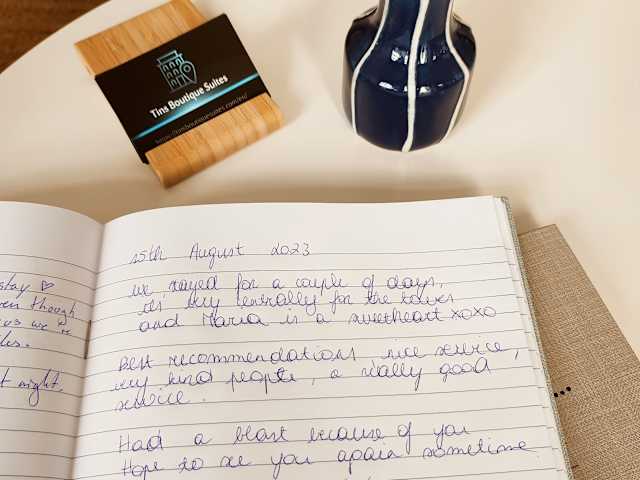 Tins Boutique Suites
https://tinsboutiquesuites.com/en/
stay ♡
even though
us we're
t night.
15th August 2023
we stayed for a couple of days,
it's very centrally for the
and Maria is a sweetheart xoxo
Best recommendations, nice service,
very kind people, a really good
service.
Had a blast because of you
Hope to see you again sometime